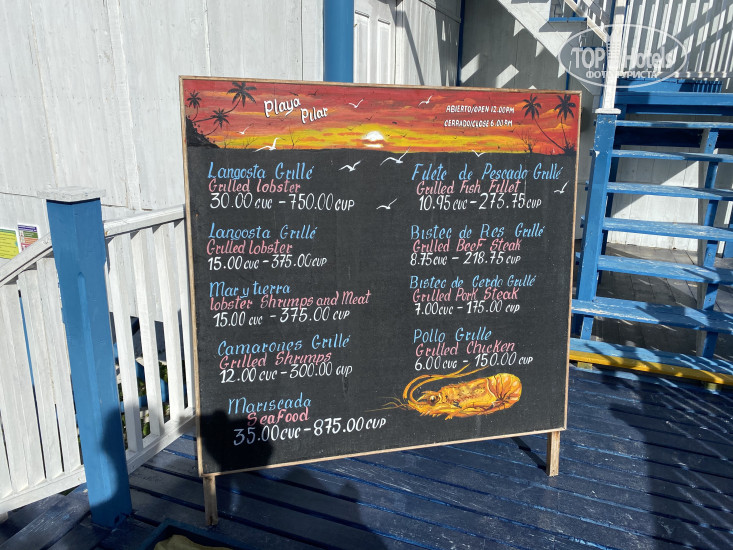 Playa
Pilar
ABIERTO/OPEN 12.00PM
CERRADO/CLOSE 6.00 PM
Langosta Grillé
Grilled lobster
30.00 CUC - 750.00 CUP
Langosta Grillé
Grilled lobster
15.00 CUC - 375.00 CUP
Mar y tierra
lobster Shrimps and Meat
15.00 CUC - 375.00 CUP
Camarones Grillé
Grilled Shrimps
12.00 CUC - 300.00 CUP
Mariscada
SeaFood
35.00 CUC - 875.00 CUP
Filete de Pescado Grillé
Grilled Fish Fillet
10.95 CUC - 273.75 CUP
Bistec de Res Grillé
Grilled Beef Steak
8.75 CUC - 218.75 CUP
Bistec de Cerdo Grillé
Grilled Pork Steak
7.00 CUC - 175.00 CUP
Pollo Grille
Grilled Chicken
6.00 CUC - 150.00 CUP
TOP Hotels
фото туристов